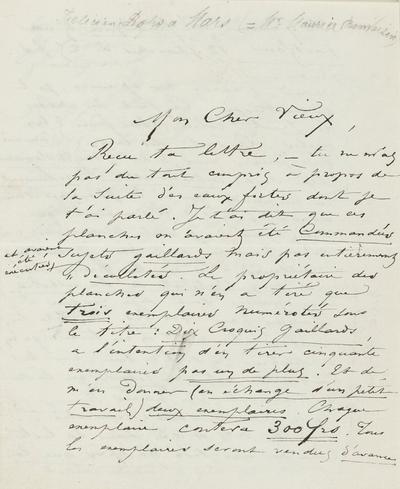 Félicien Rops à Mars (= Mr Maurice Bonvoisin)
Mon Cher Vieux,
Reçu ta lettre, – tu ne m'as
pas du tout compris à propos de
la Suite des eaux fortes dont je
t'ai parlé. Je t'ai dit que ces
planches en avaient été Commandées
et avaient
été
exécutées
Sujets gaillards mais pas entièrement
déculletés. Le propriétaire des
planches qui n'en a tiré que
trois exemplaires numérotés sous
le titre : Dix Croquis Gaillards,
a l'intention d'en tirer cinquante
exemplaires pas un de plus ! Et de
m'en donner (en échange d'un petit
travail) deux exemplaires. Chaque
exemplaire coutera 300 frs. Tous
les exemplaires seront vendus d'avance